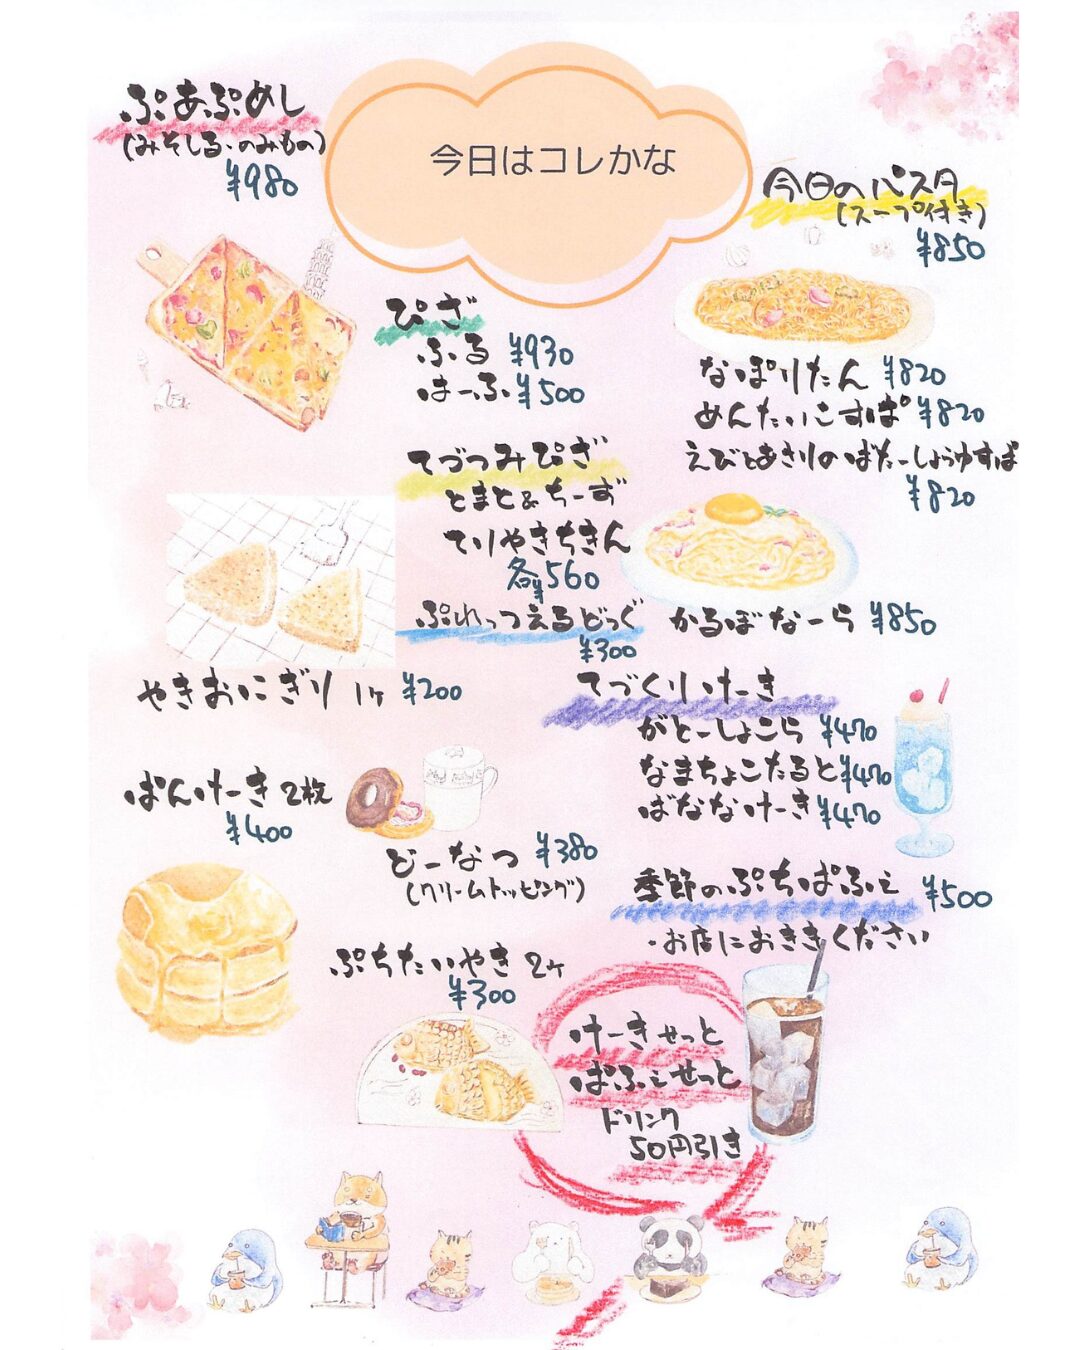 今日はコレかな
ぷあぷめし
(みそしる・のみもの)
¥980
今日のパスタ
(スープ付き)
¥850
ぴざ
ふる ¥930
はーふ ¥500
なぽりたん ¥820
めんたいこすぱ ¥820
えびとあさりのばたーしょうゆすぱ
¥820
かるぼなーら ¥850
てづつみぴざ
とまと&ちーず
てりやきちきん
各¥560
ぷれっつぇるどっぐ
¥300
やきおにぎり 1ヶ ¥200
てづくりけーき
がとーしょこら ¥470
なまちょこたると ¥470
ばななけーき ¥470
ぱんけーき 2枚
¥400
どーなつ ¥380
(クリームトッピング)
季節のぷちぱふぇ ¥500
・お店におききください
ぷちたいやき 2ヶ
¥300
けーきせっと
ぱふぇせっと
ドリンク
50円引き